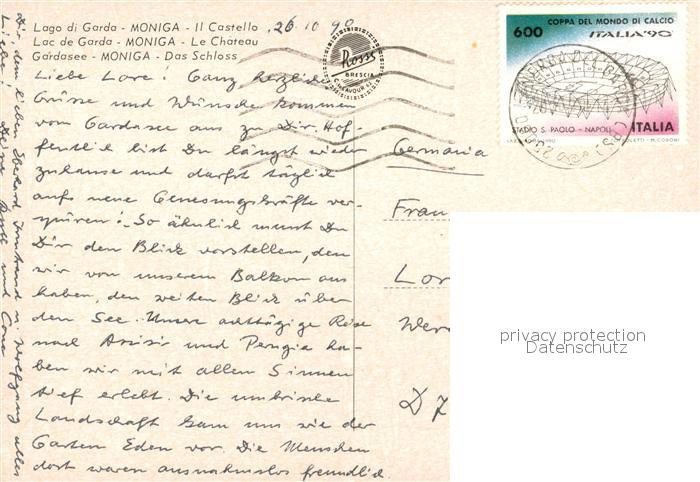 Lago di Garda - MONIGA - Il Castello
Lac de Garda - MONIGA - Le Château
Gardasee - MONIGA - Das Schloss
26 10 90
Rosss
BRESCIA
COPPA DEL MONDO DI CALCIO
600 ITALIA '90
STADIO S. PAOLO - NAPOLI ITALIA
M. CODONI
Liebe Lore! Ganz herzliche
Grüsse und Wünsche kommen
vom Gardasee aus zu Dir. Hof-
fentlich bist Du längst wieder
zuhause und darfst täglich
aufs neue Genesungskräfte ver-
spüren! So ähnlich musst Du
Dir den Blick vorstellen, den
wir von unserem Balkon aus
haben, den weiten Blick über
den See. Unsere achttägige Reise
nach Assisi und Perugia ha-
ben wir mit allen Sinnen
tief erlebt. Die umbrische
Landschaft kam uns wie der
Garten Eden vor. Die Menschen
dort waren ausnahmslos freundlich.
Dir dem lieben Eberhard
alles
Liebe! Deine und
Germania
Frau
Lor
Wer
D 7
privacy protection
Datenschutz